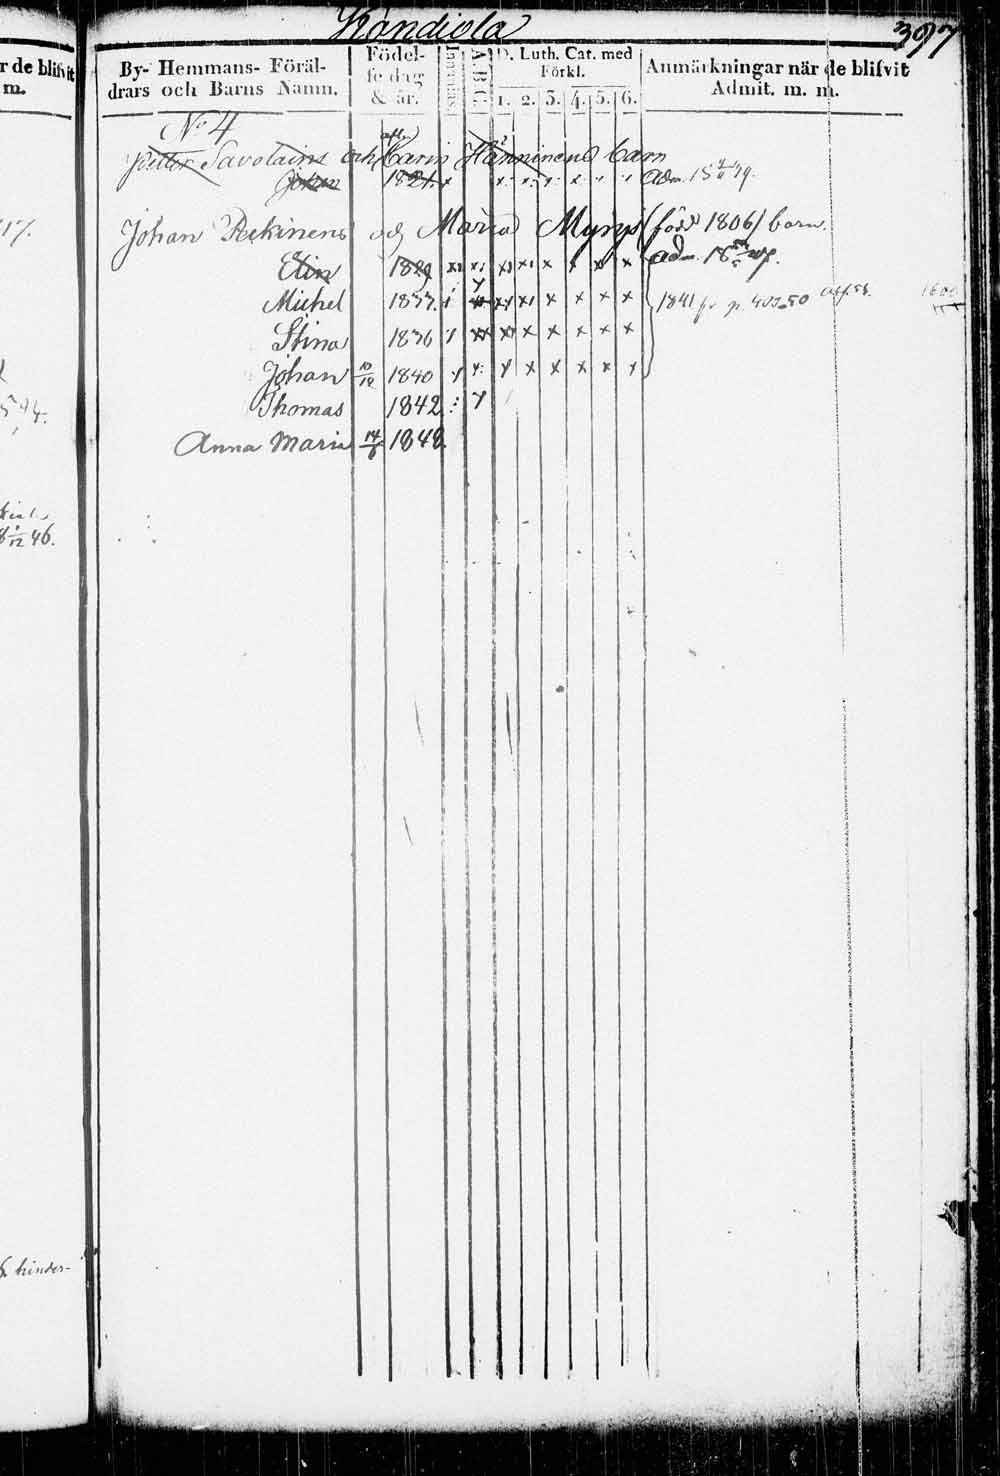 Kandiola
397
r de blifvit
m.
By- Hemmans- Föräl-
drars och Barns Namn.
Födel-
se dag
& år.
Innantils
A B C.
D. Luth. Cat. med
Förkl.
1. 2. 3. 4. 5. 6.
Anmärkningar när de blifvit
Admit. m. m.
No 4
Petter Savolains och Carin Hänninens barn
Johan 1821. adm.
Johan Pekinens och Maria Myrys (född 1806) barn.
Elin adm.
Michel 1833. 1841 fr p.
Stina 1836
Johan 10/12 1840
Thomas 1842
Anna Maria 1848.
17.
46.
hinder-